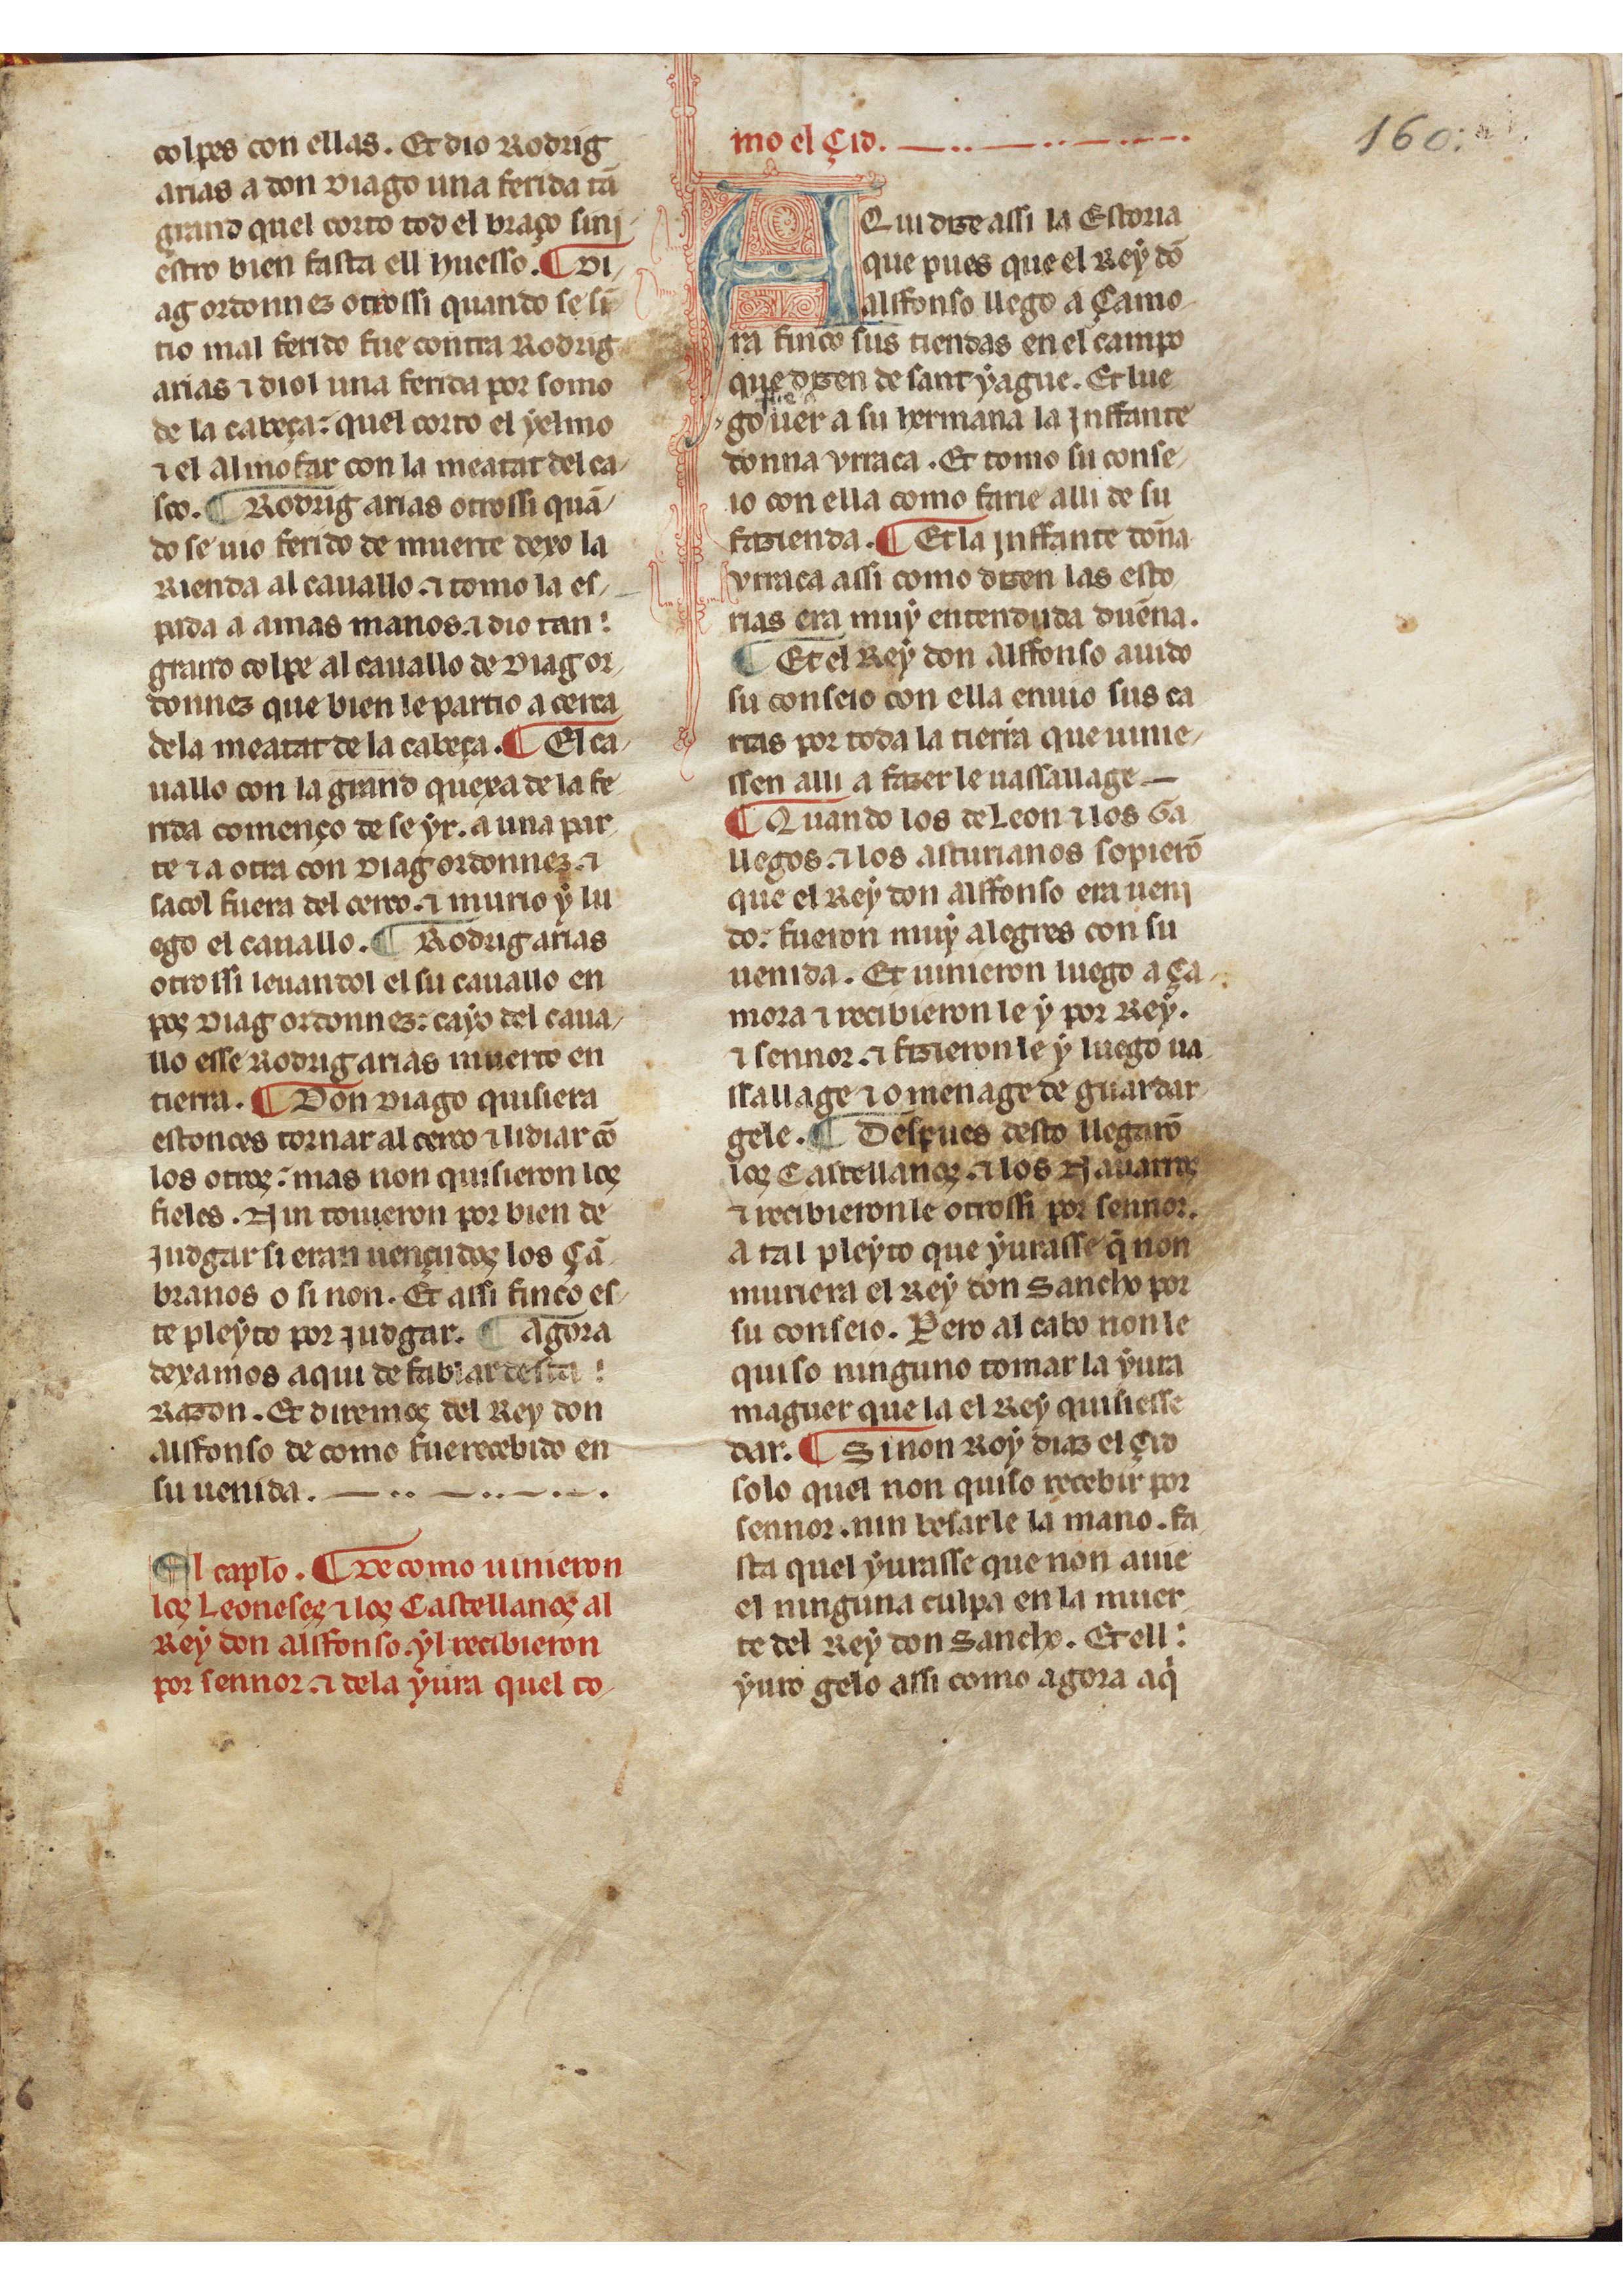 colpes con ellas. Et dio Rodrig
arias a don Diago una ferida tã
grand quel corto tod el braço sini
estro bien fasta ell huesso. ¶ Di
ag ordonnez otrossi quando se sĩ
tio mal ferido fue contra Rodrig
arias ⁊ diol una ferida por somo
de la cabeça: quel corto el yelmo
⁊ el Almofar con la meatat del ca
sco. ¶ Rodrig arias otrossi quã
do se uio ferido de muerte dexo la
Rienda al cauallo. ⁊ tomo la es
pada a amas manos. ⁊ dio tan
grand colpe al cauallo de Diag or
donnez que bien le partio a cerca
dela meatat de la cabeça. ¶ El ca
uallo con la grand quexa de la fe
rida començo de se yr. a una par
te ⁊ a otra con Diag ordonnez. ⁊
sacol fuera del cerco. ⁊ murio ẏ lu
ego el cauallo. ¶ Rodrig arias
otrossi leuandol el su cauallo en
pos Diag ordonnez: cayo del caua
llo esse Rodrig arias muerto en
tierra. ¶ Don Diago quisiera
estonces tornar al cerco ⁊ lidiar cõ
los otros: mas non quisieron los
fieles. Nin touieron por bien de
judgar si eran uençudos los Çã
branos o si non. Et assi finco es
te pleẏto por judgar. ¶ Agora
dexamos aqui de fablar desta
Razon. Et diremos del Rey don
Alffonso de como fue recebido en
su uenida.
El caplo. ¶ De como uinieron
los Leoneses ⁊ los Castellanos al
Reẏ don alffonso. ẏl recibieron
por sennor. ⁊ dela ẏura quel to
mo el Çid.
AQui dize assi la Estoria
que pues que el Reẏ dõ
alffonso llego a Çamo
ra finco sus tiendas en el campo
que dizen de sant ẏague. Et lue
go fue a uer a su hermana la jnffante
donna Vrraca. Et tomo su conse
io con ella como farie alli de su
fazienda. ¶ Et la jnffante doña
Vrraca assi como dizen las esto
rias era muẏ entenduda dueña.
¶ Et el Reẏ don Alffonso auido
su conseio con ella enuio sus ca
rtas por toda la tierra que uinie
ssen alli a fazer le uassallage
¶ Quando los de Leon ⁊ los Ga
llegos. ⁊ los asturianos sopierõ
que el Reẏ don alffonso era ueni
do: fueron muẏ alegres con su
uenida. Et uinieron luego a Ça
mora ⁊ recibieron le ẏ por Reẏ.
⁊ sennor. ⁊ fizieron le ẏ luego ua
ssallage ⁊ omenage de guardar
gele. ¶ Despues desto llegarõ
los Castellanos. ⁊ los Nauarros
⁊ recibieronle otrossi por sennor.
A tal pleẏto que ẏurasse q̃ non
muriera el Reẏ don Sancho por
su conseio. Pero al cabo non le
quiso ninguno tomar la ẏura
maguer que la el Reẏ quisiesse
dar. ¶ Sinon Roẏ diaz el Çid
solo quel non quiso recebir por
sennor. nin besarle la mano. fa
sta quel ẏurasse que non auie
el ninguna culpa en la muer
te del Reẏ don Sancho. Et ell
ẏuro gelo assi como agora aq̃
160:
6